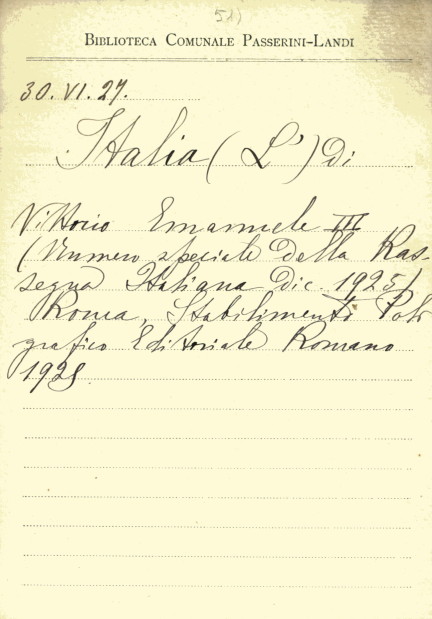 51)
BIBLIOTECA COMUNALE PASSERINI-LANDI
30.VI.27.
Italia (L') di
Vittorio Emanuele III
(Numero speciale della Ras-
segna Italiana Dic. 1925)
Roma, Stabilimento Poli
grafico Editoriale Romano
1925